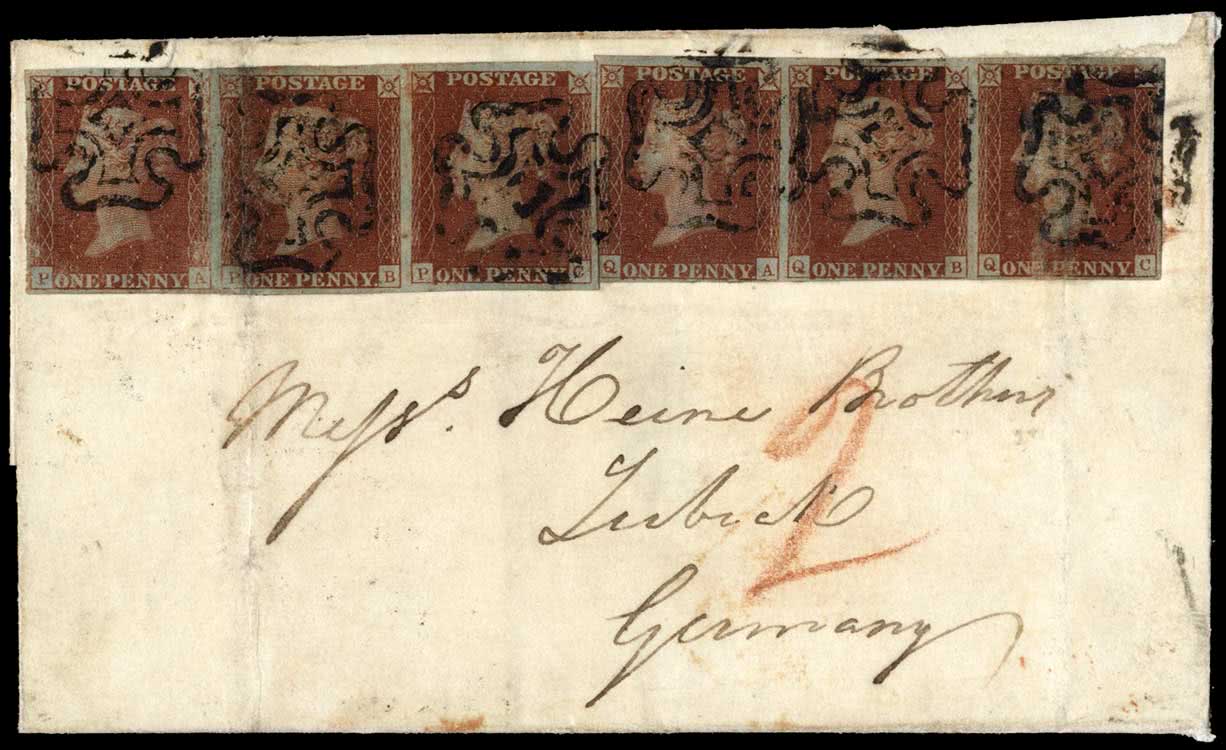 POSTAGE POSTAGE POSTAGE POSTAGE POSTAGE POSTAGE
P ONE PENNY. A P ONE PENNY. B P ONE PENNY. C Q ONE PENNY. A Q ONE PENNY. B Q ONE PENNY. C
Messrs. Heine Brothers
2
Lubeck
Germany